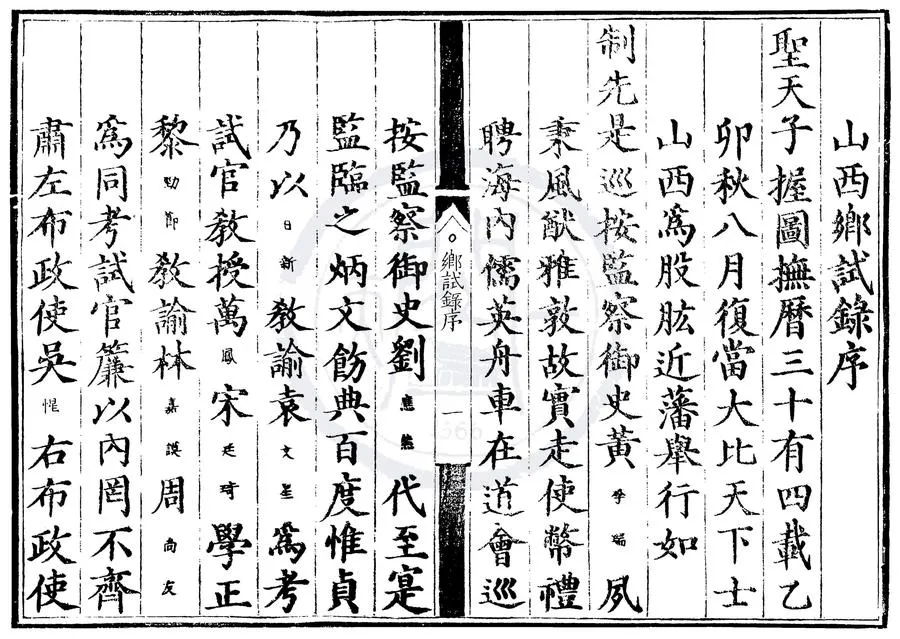 山西鄉試錄序
聖天子握圖撫曆三十有四載乙
卯秋八月復當大比天下士
山西爲股肱近藩舉行如
制先是巡按監察御史黃季瑞夙
秉風猷雅敦故實走使幣禮
聘海內儒英舟車在道會巡
鄉試錄序 一
按監察御史劉應熊代至寔
監臨之炳文飭典百度惟貞
乃以日新教諭袁文星爲考
試官教授萬鳳宋廷琦學正
黎勛鄭教諭林嘉謨周尚友
爲同考試官簾以內罔不齊
肅左布政使吳惺右布政使